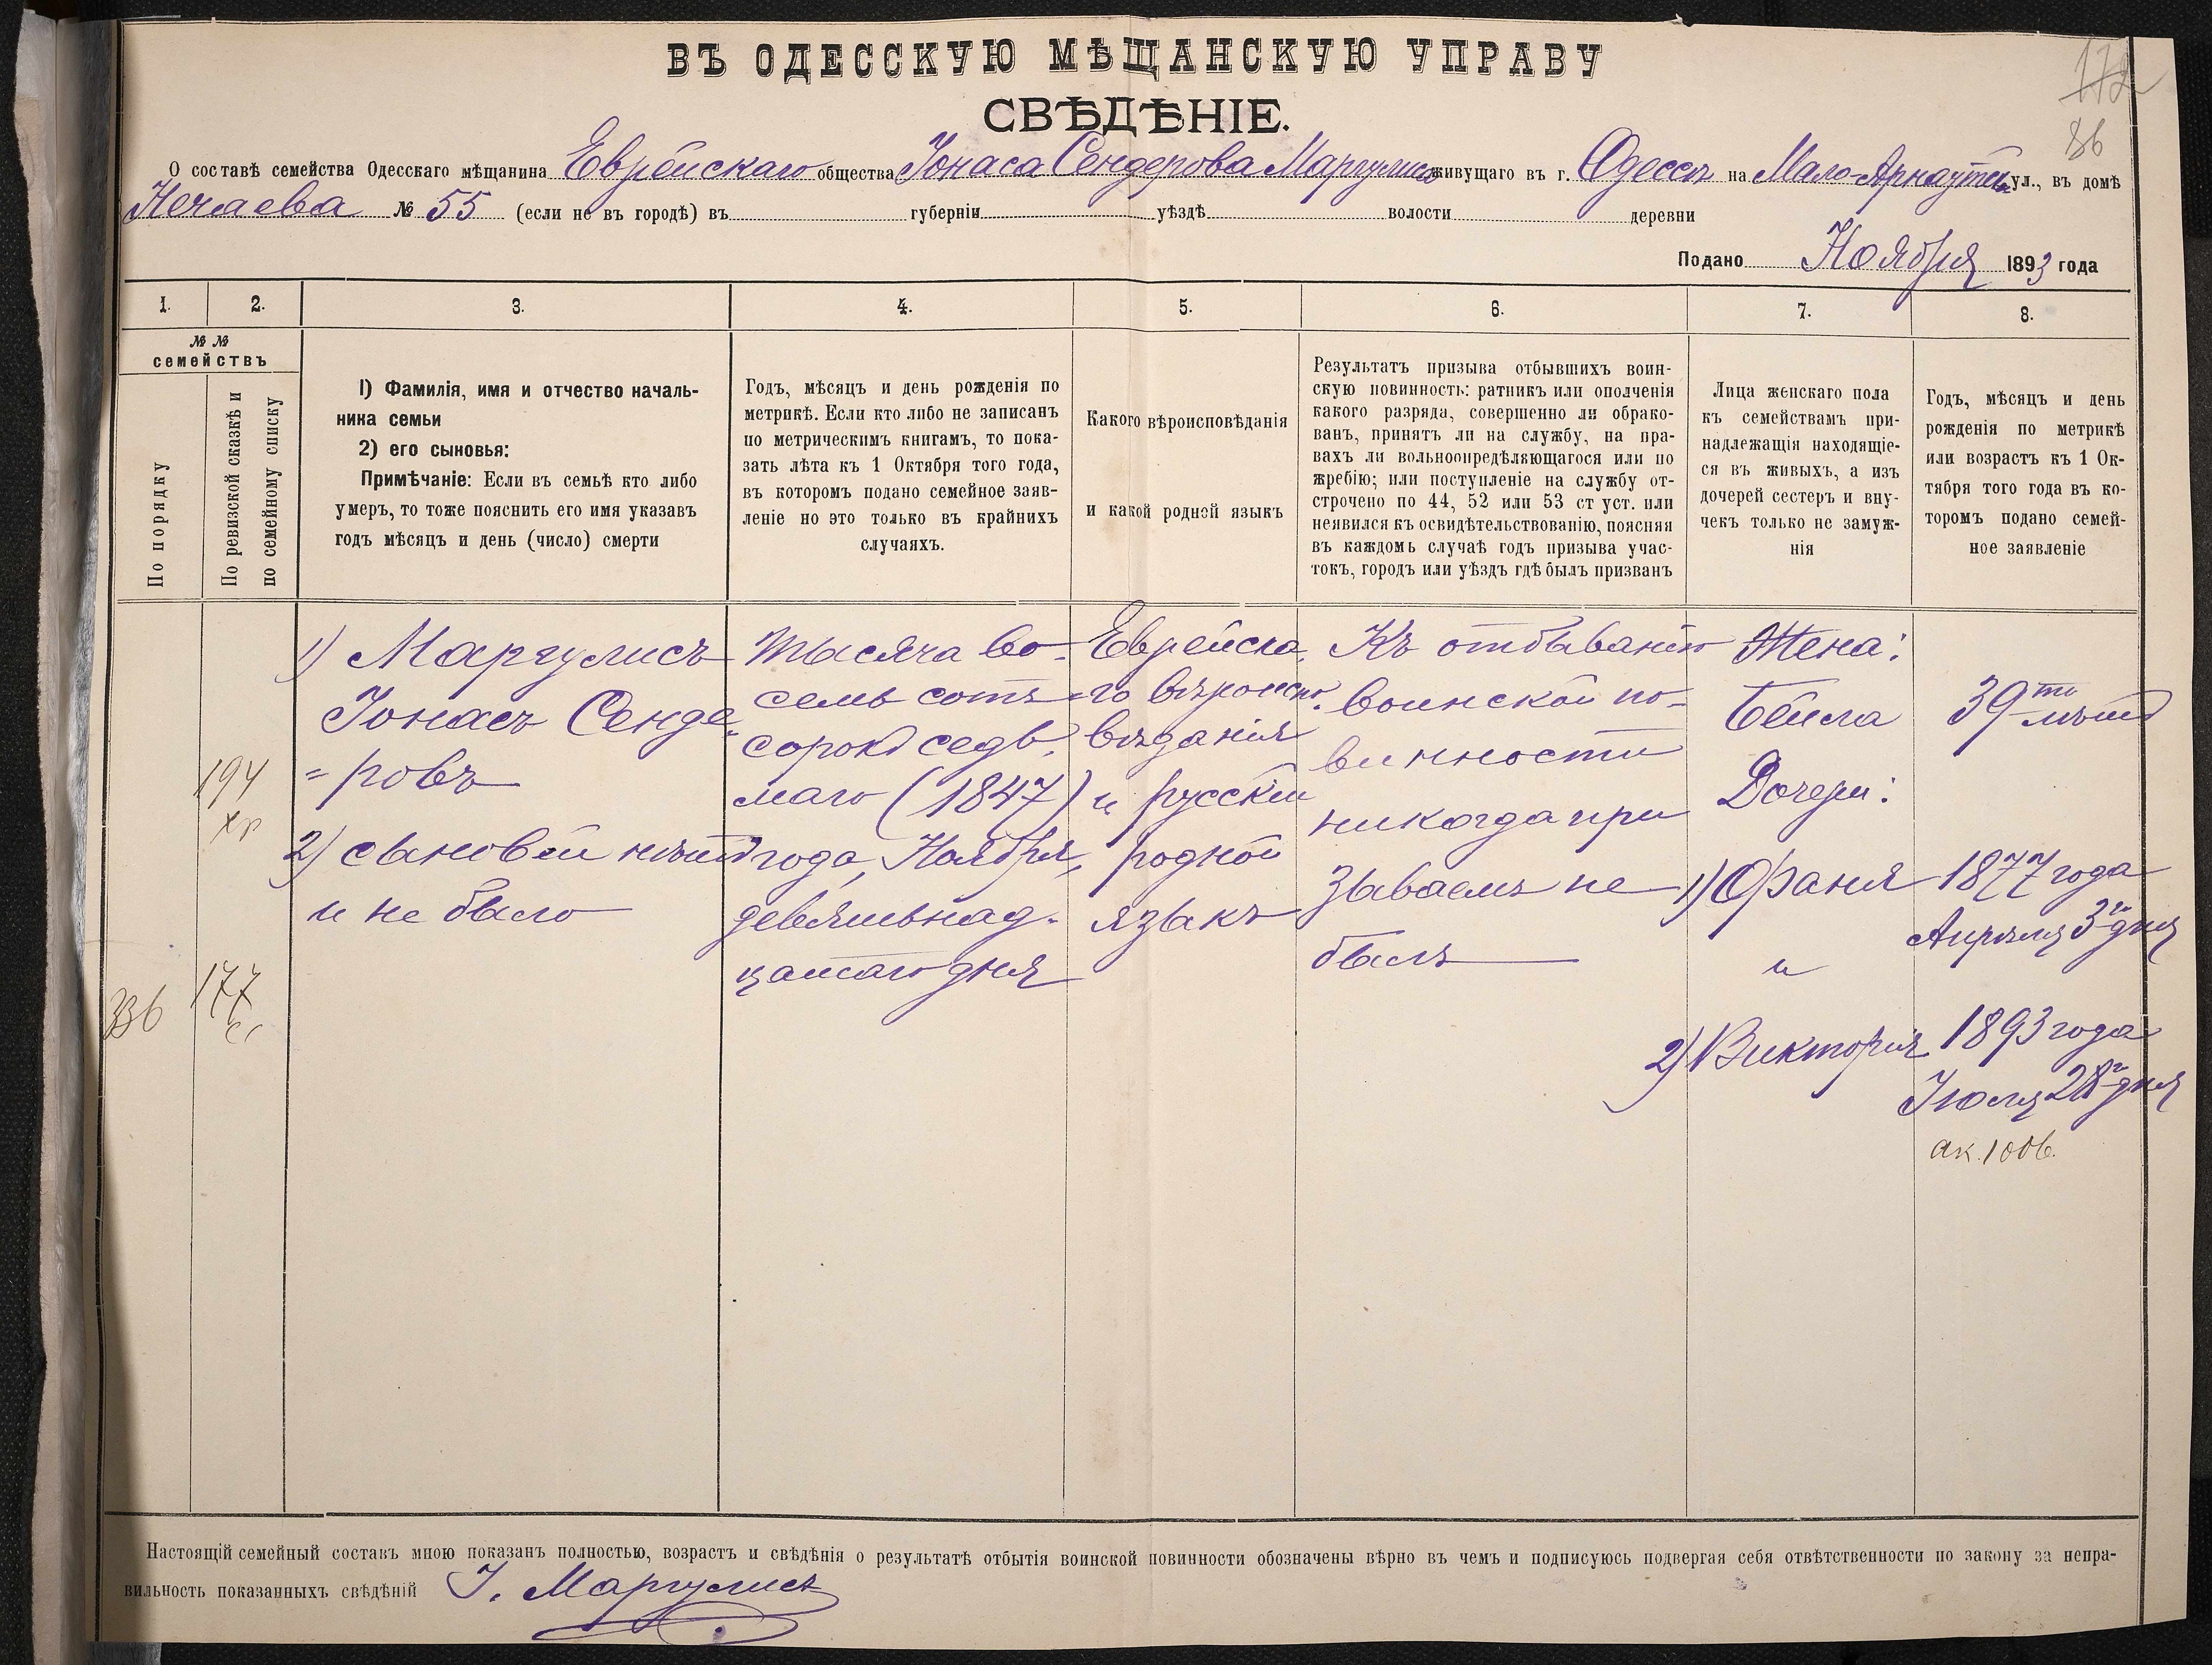 ВЪ ОДЕССКУЮ МѢЩАНСКУЮ УПРАВУ
СВѢДѢНІЕ.
172
86
О составѣ семейства Одесскаго мѣщанина Еврейскаго общества Іонаса Сендерова Маргулиса живущаго въ г. Одессѣ на Мало-Арнаутск ул., въ домѣ
Нечаева № 55 (если не въ городѣ) въ губерніи уѣздѣ волости деревни
Подано Ноября 1893 года
1.
2.
3.
4.
5.
6.
7.
8.
№ №
семействъ
По порядку
По ревизской сказкѣ и
по семейному списку
1) Фамилія, имя и отчество началь-
ника семьи
2) его сыновья:
Примѣчаніе: Если въ семьѣ кто либо
умеръ, то тоже пояснить его имя указавъ
годъ мѣсяцъ и день (число) смерти
Годъ, мѣсяцъ и день рожденія по
метрикѣ. Если кто либо не записанъ
по метрическимъ книгамъ, то пока-
зать лѣта къ 1 Октября того года,
въ которомъ подано семейное заяв-
леніе но это только въ крайнихъ
случаяхъ.
Какого вѣроисповѣданія
и какой родной языкъ
Результатъ призыва отбывшихъ воин-
скую повинность: ратникъ или ополченія
какого разряда, совершенно ли обрако-
ванъ, принятъ ли на службу, на пра-
вахъ ли вольноопредѣляющагося или по
жребію; или поступленіе на службу от-
срочено по 44, 52 или 53 ст уст. или
неявился къ освидѣтельствованію, поясняя
въ каждомъ случаѣ годъ призыва учас-
токъ, городъ или уѣздъ гдѣ былъ призванъ
Лица женскаго пола
къ семействамъ при-
надлежащія находящіе-
ся въ живыхъ, а изъ
дочерей сестеръ и вну-
чекъ только не замуж-
нія
Годъ, мѣсяцъ и день
рожденія по метрикѣ
или возрастъ къ 1 Ок-
тября того года въ ко-
торомъ подано семей-
ное заявленіе
336
194
177
1) Маргулисъ
Іонасъ Сенде
= ровъ
2) сыновей нѣтъ
и не было
Тысяча во-
семь сотъ
сорокъ седь-
маго (1847)
года, Ноября,
девятьнад-
цатаго дня
Еврейска
го вѣроиспо-
вѣданія
и русскій
родной
языкъ
Къ отбыванію
воинской по-
винности
никогда при
зываемъ не
былъ
Жена:
Бейла
Дочери:
1) Фаня
и
2) Викторія
39ти лѣтъ
1877 года
Апрѣля 3го дня
1893 года
Іюля 28го дня
ак. 1006.
Настоящій семейный составъ мною показанъ полностью, возрастъ и свѣдѣнія о результатѣ отбытія воинской повинности обозначены вѣрно въ чемъ и подписуюсь подвергая себя отвѣтственности по закону за непра-
вильность показанныхъ свѣдѣній І. Маргулисъ